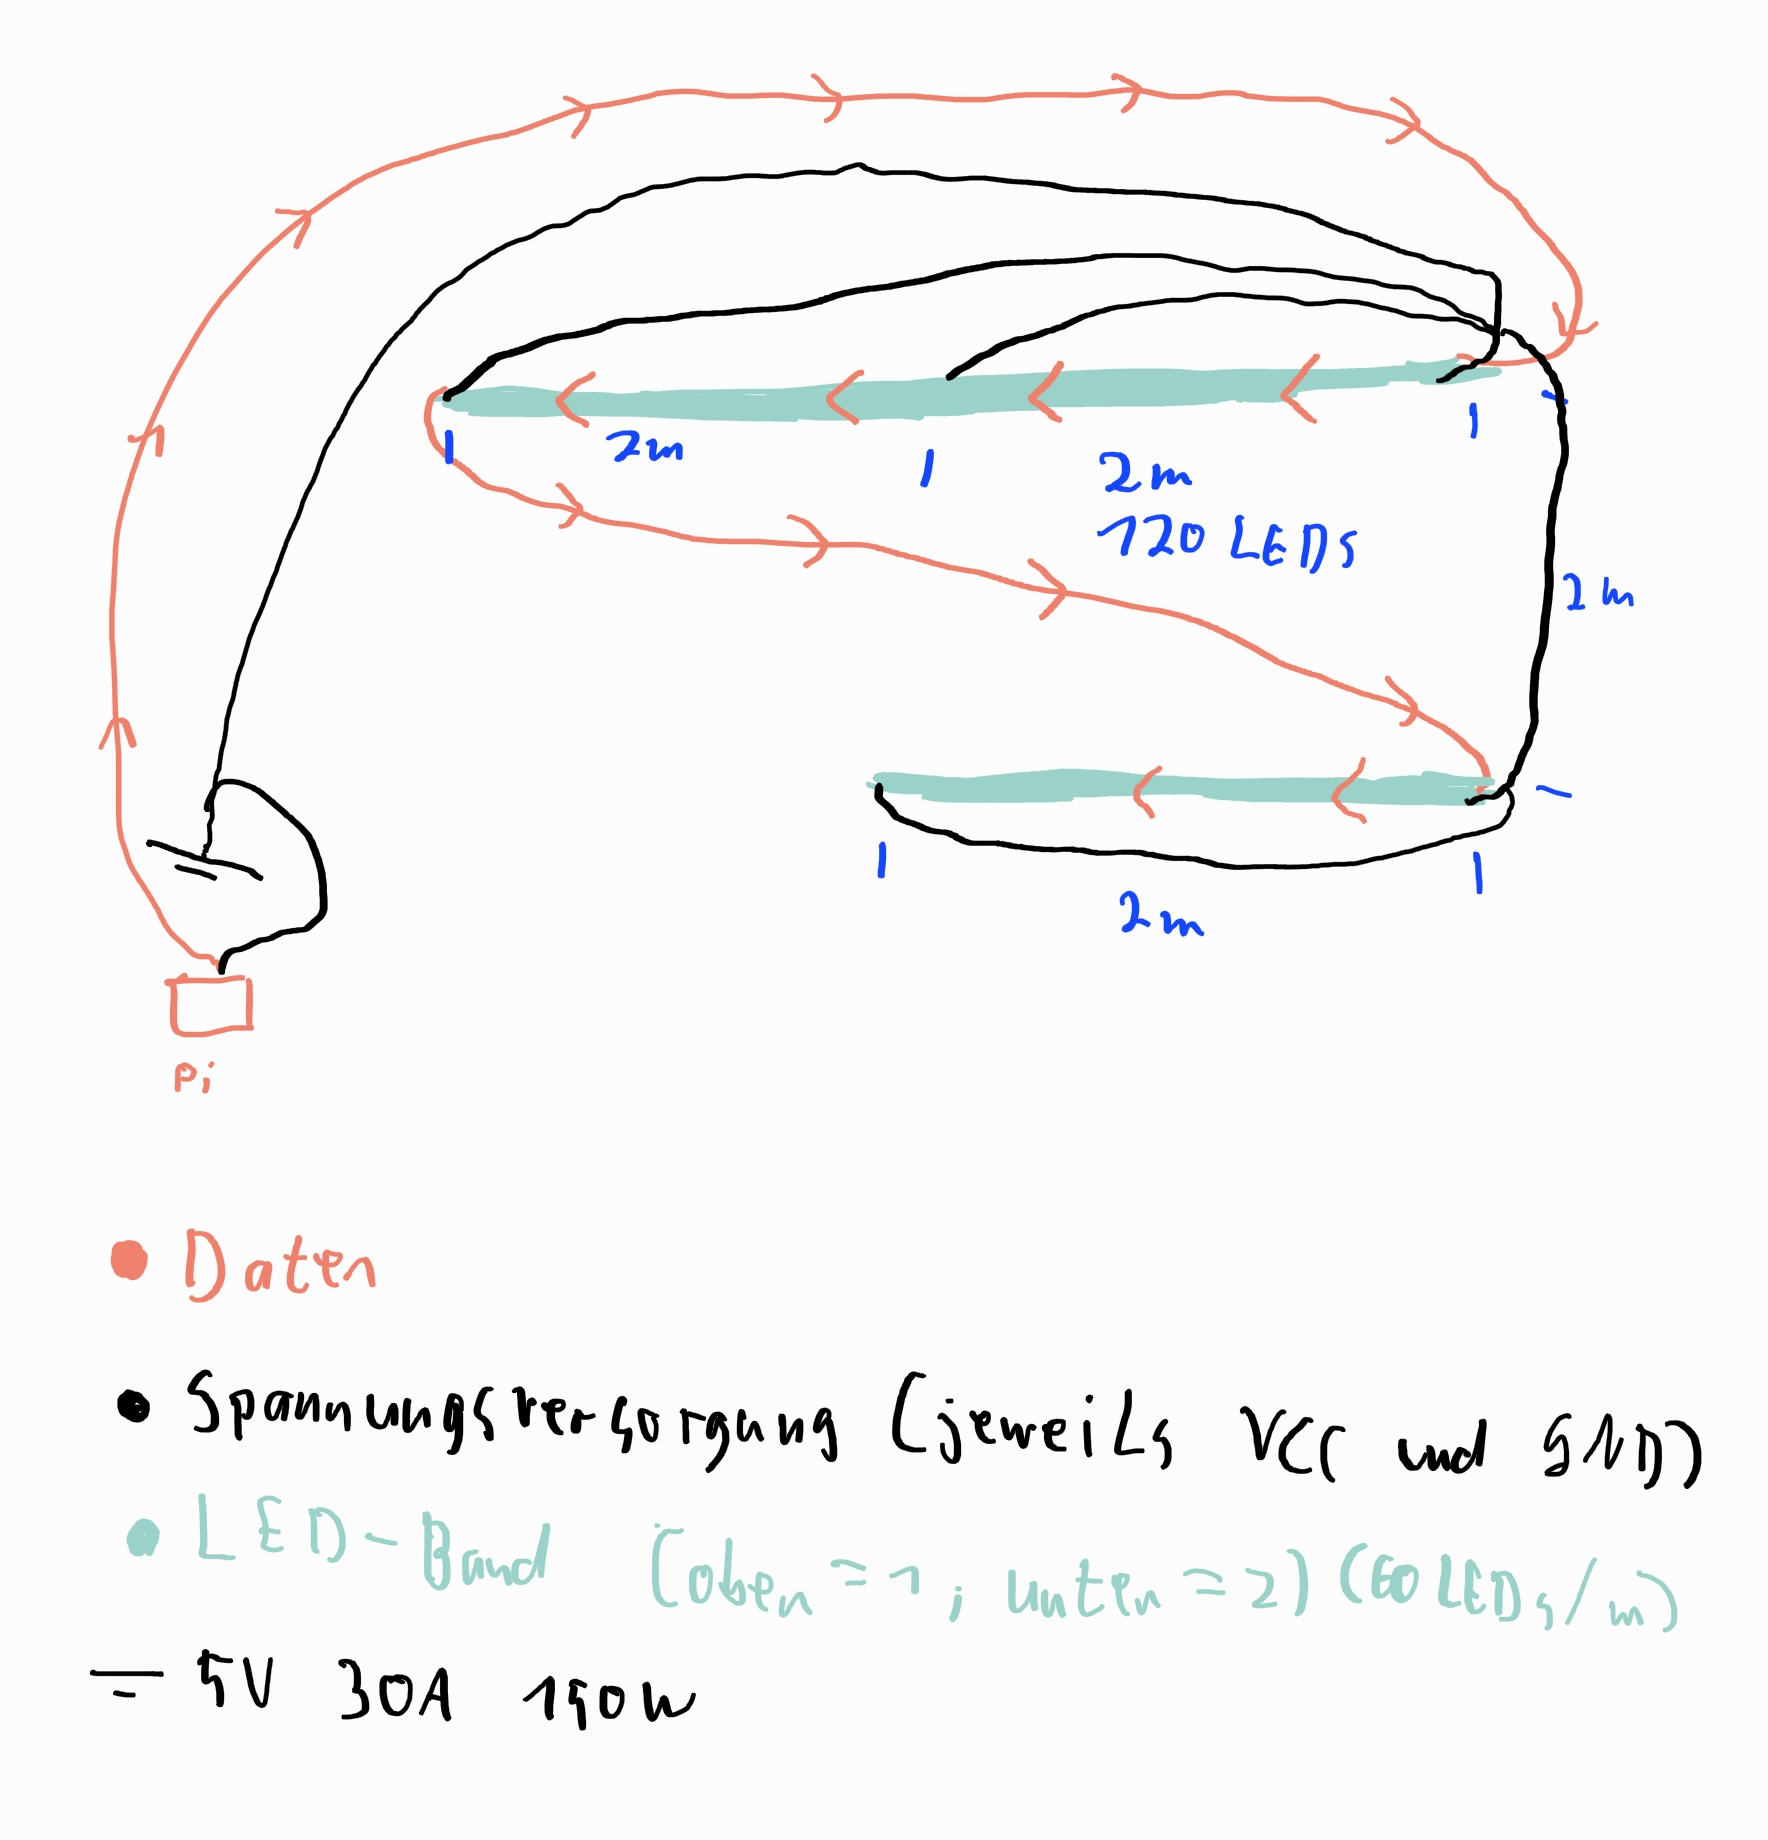 2m
2m
120 LEDs
2m
2m
Pi
Daten
Spannungsversorgung (jeweils VCC und GND)
LED-Band (oben = 1; unten = 2) (60 LEDs/m)
5V 30A 150W